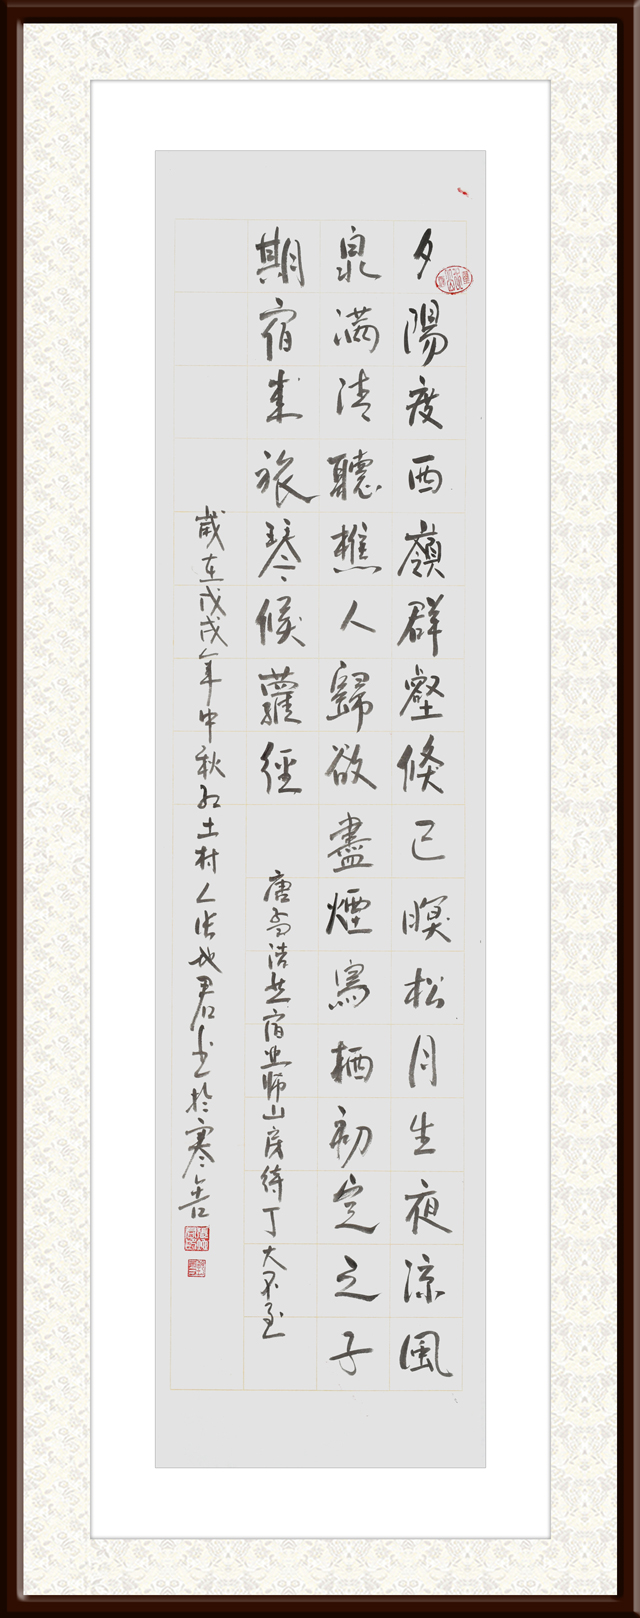 夕陽度西嶺群壑倏已暝松月生夜涼風
泉满清聽樵人歸欲盡煙鳥栖初定之子
期宿来旅琴候蘿徑
唐孟浩然宿业师山房待丁大不至
歲在戊戌年中秋红土村人张君书於寒舍